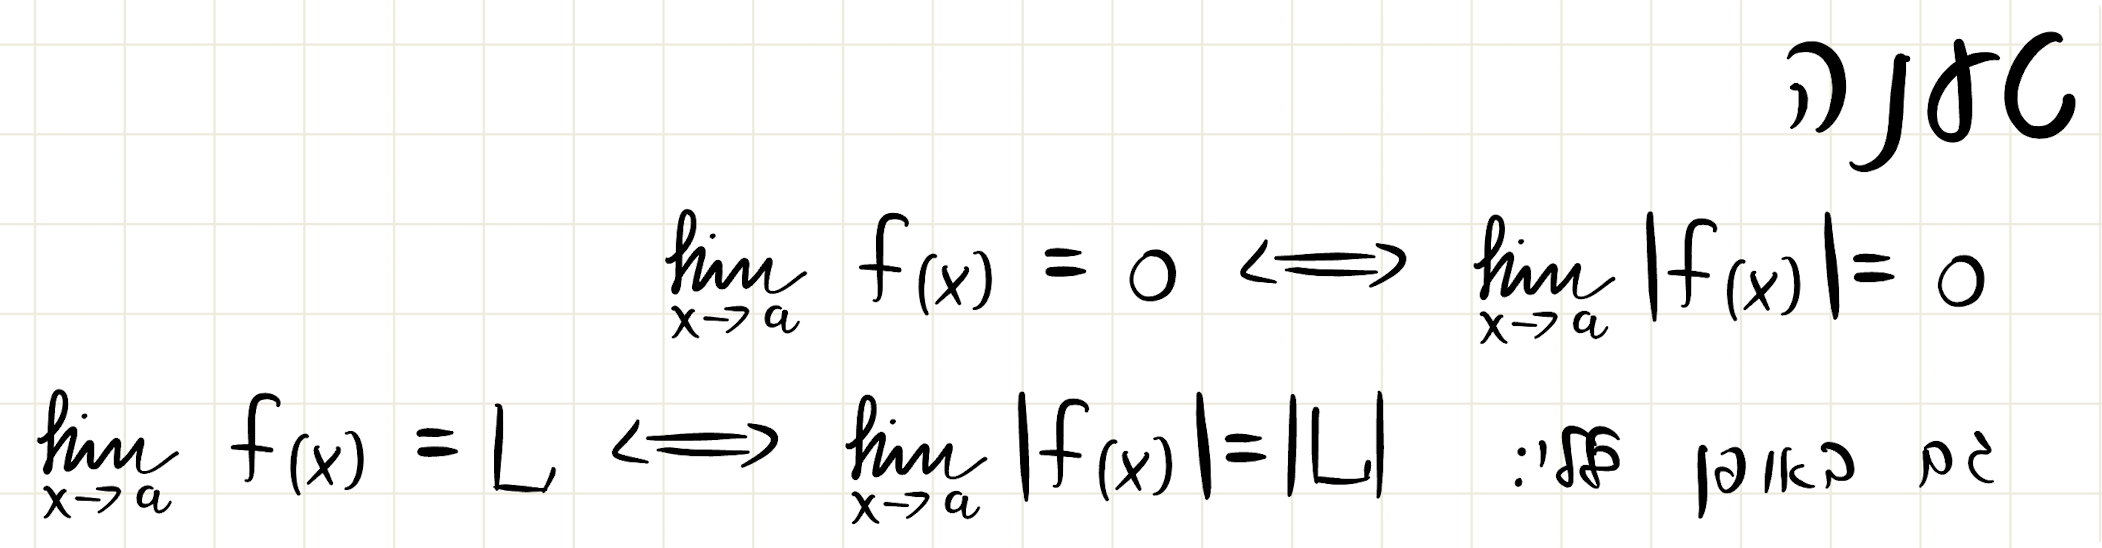 טענה
lim x→a f(x) = 0 ⟺ lim x→a |f(x)| = 0
גם באופן כללי: lim x→a f(x) = L ⟺ lim x→a |f(x)| = |L|